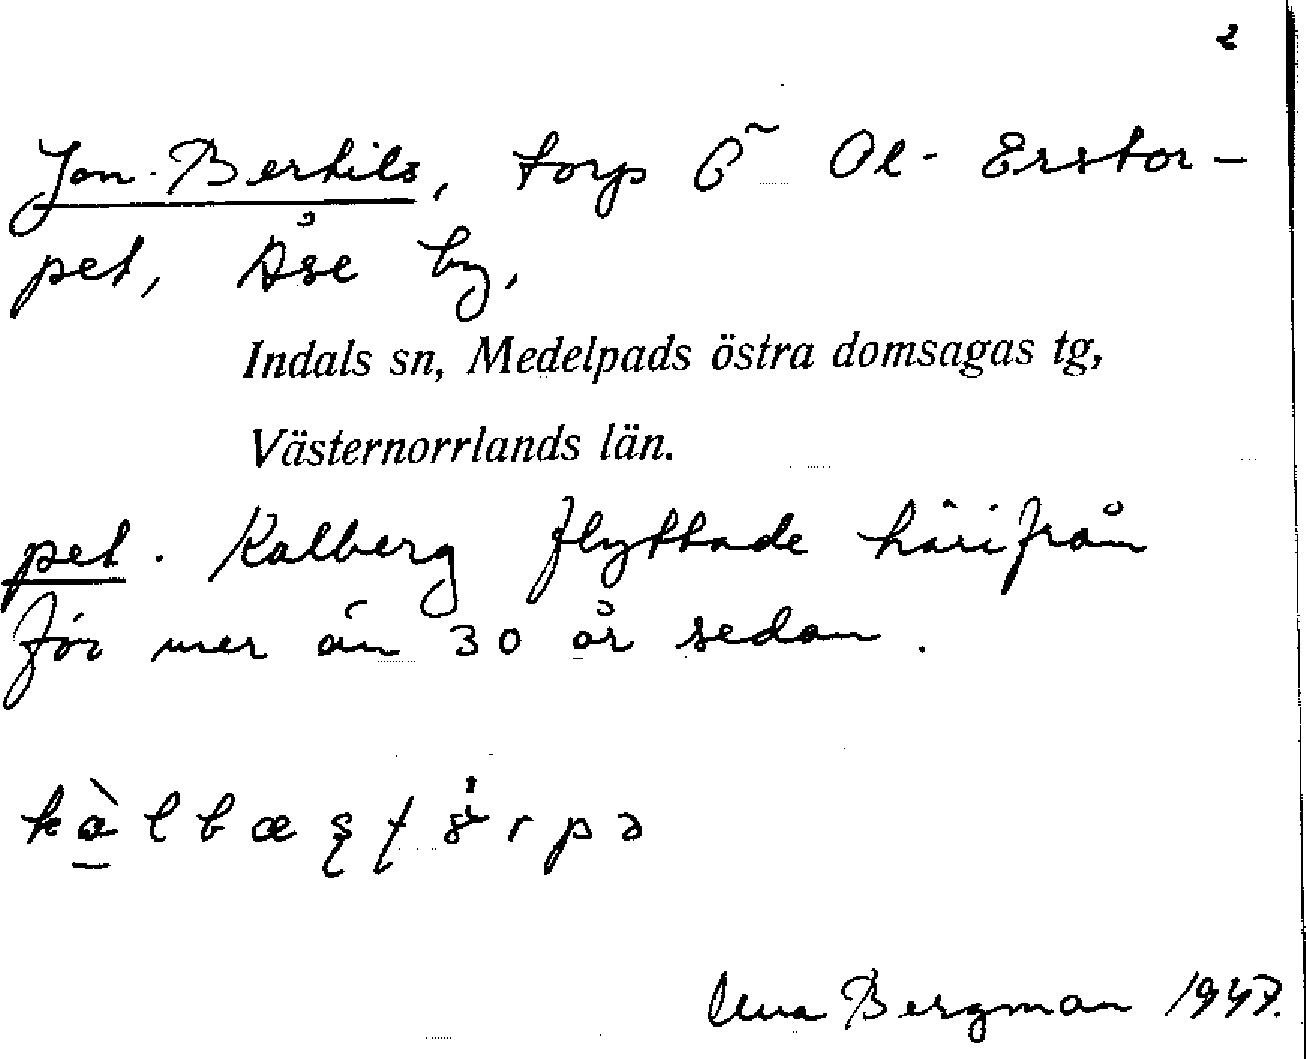 2
Jon-Bertils, torp Ö Ol-Erstor-
pet, Åse by,
Indals sn, Medelpads östra domsagas tg,
Västernorrlands län.
pet. Kalberg flyttade härifrån
för mer än 30 år sedan.
Bergman 1947.